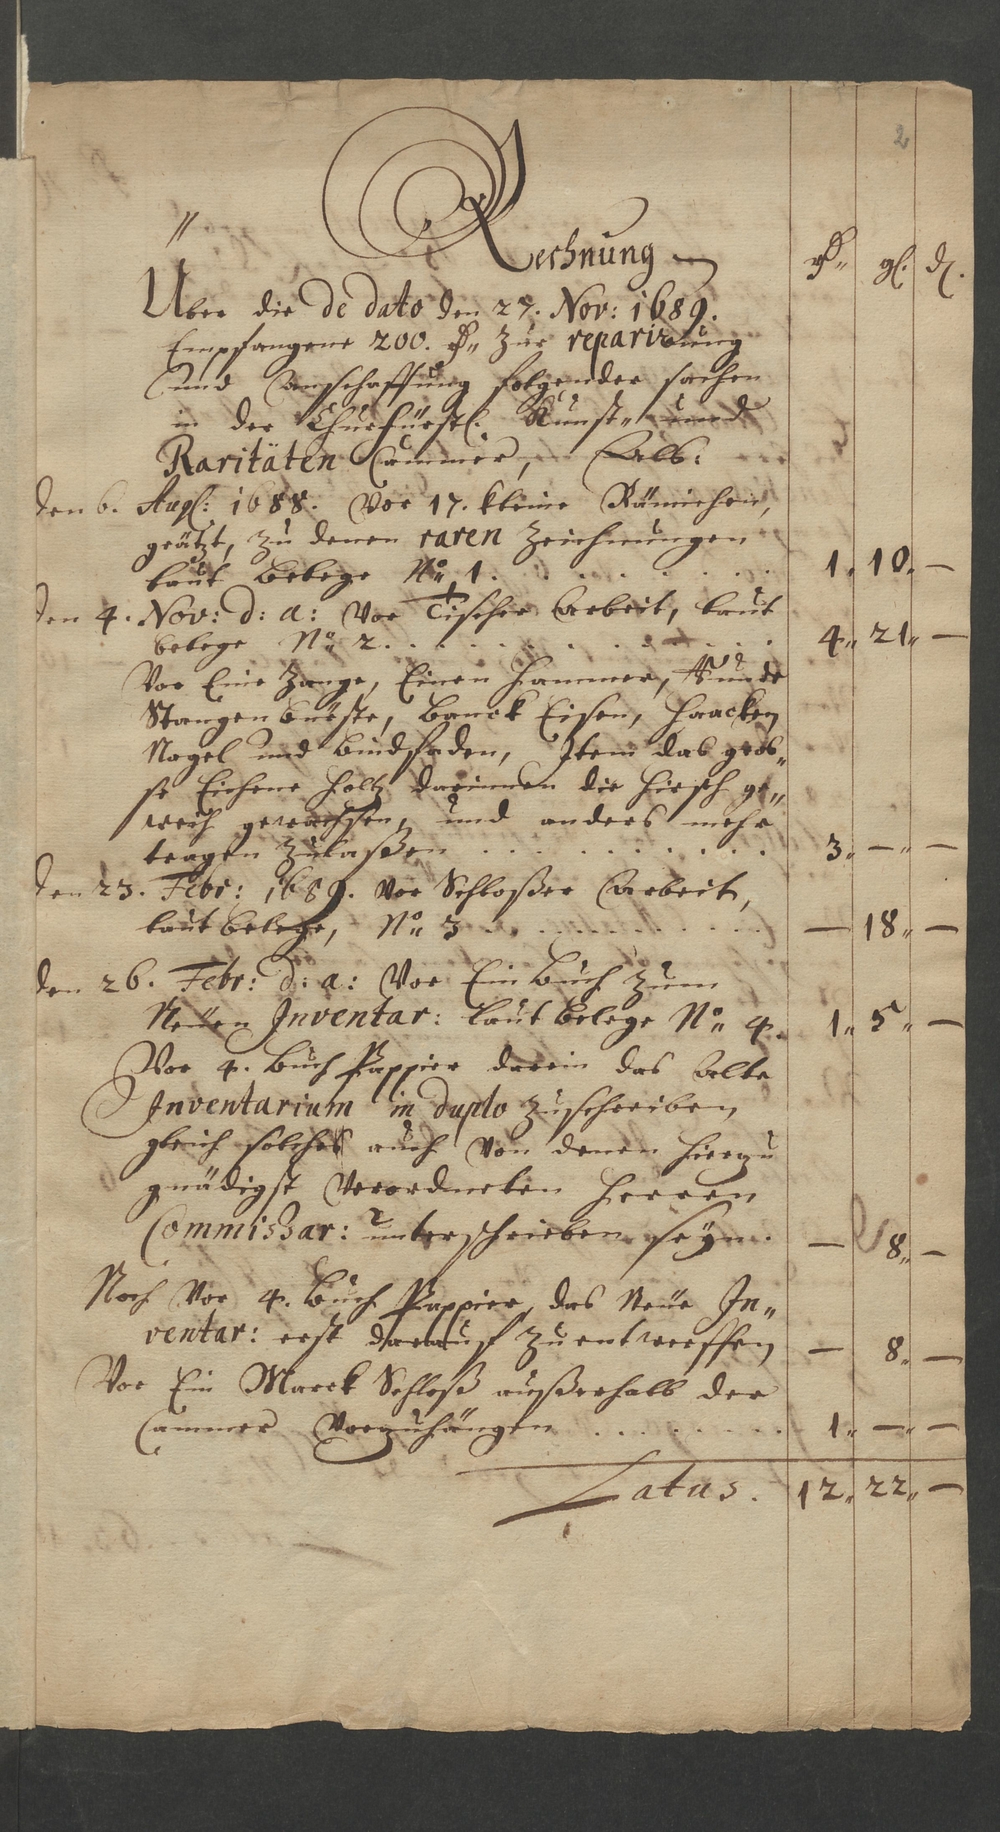 2
Rechnung
rℓ. gl. d.
Uber die de dato den 27. Nov: 1689.
Empfangene 200. rℓ. zur reparirung
und Anschaffung folgender sachen
in der Churfürstl. Kunst- und
Raritäten Cammer, Alß:
den 6. Aug: 1688. Vor 17. kleine Rämichen,
geätzt, zu denen raren Zeichnungen
laut Belege No. 1. 1. 10. —
den 4. Nov: d: a: Vor Tischer Arbeit, laut
belege No. 2. 4. 21. —
Vor Eine Zange, Einen Hammer, Runde
Stangen bürste, Banck Eisen, Haacken
Nagel und Bindfaden, Item das gros-
se Eichene Holtz darinnen die Hirsch ge-
weih gewachsen, und anders mehr
tragen zulaßen 3. — —
den 23. Febr: 1689. Vor Schloßer Arbeit,
laut belege, No. 3 — 18. —
den 26. Febr: d: a: Vor Ein Buch zum
Neuen Inventar: laut belege No. 4. 1. 5. —
Vor 4. Buch Pappier darein das Alte
Inventarium in duplo zuschreiben
gleich solches auch von denen hierzu
gnädigst Verordneten Herren
Commissar: unterschrieben seyn. — 8. —
Noch Vor 4. Buch Pappier, das Neue In-
ventar: erst darauf zu entwerffen — 8. —
Vor Ein Marck Schloß außerhalb der
Cammer Vorzuhängen 1. — —
Latus. 12. 22. —